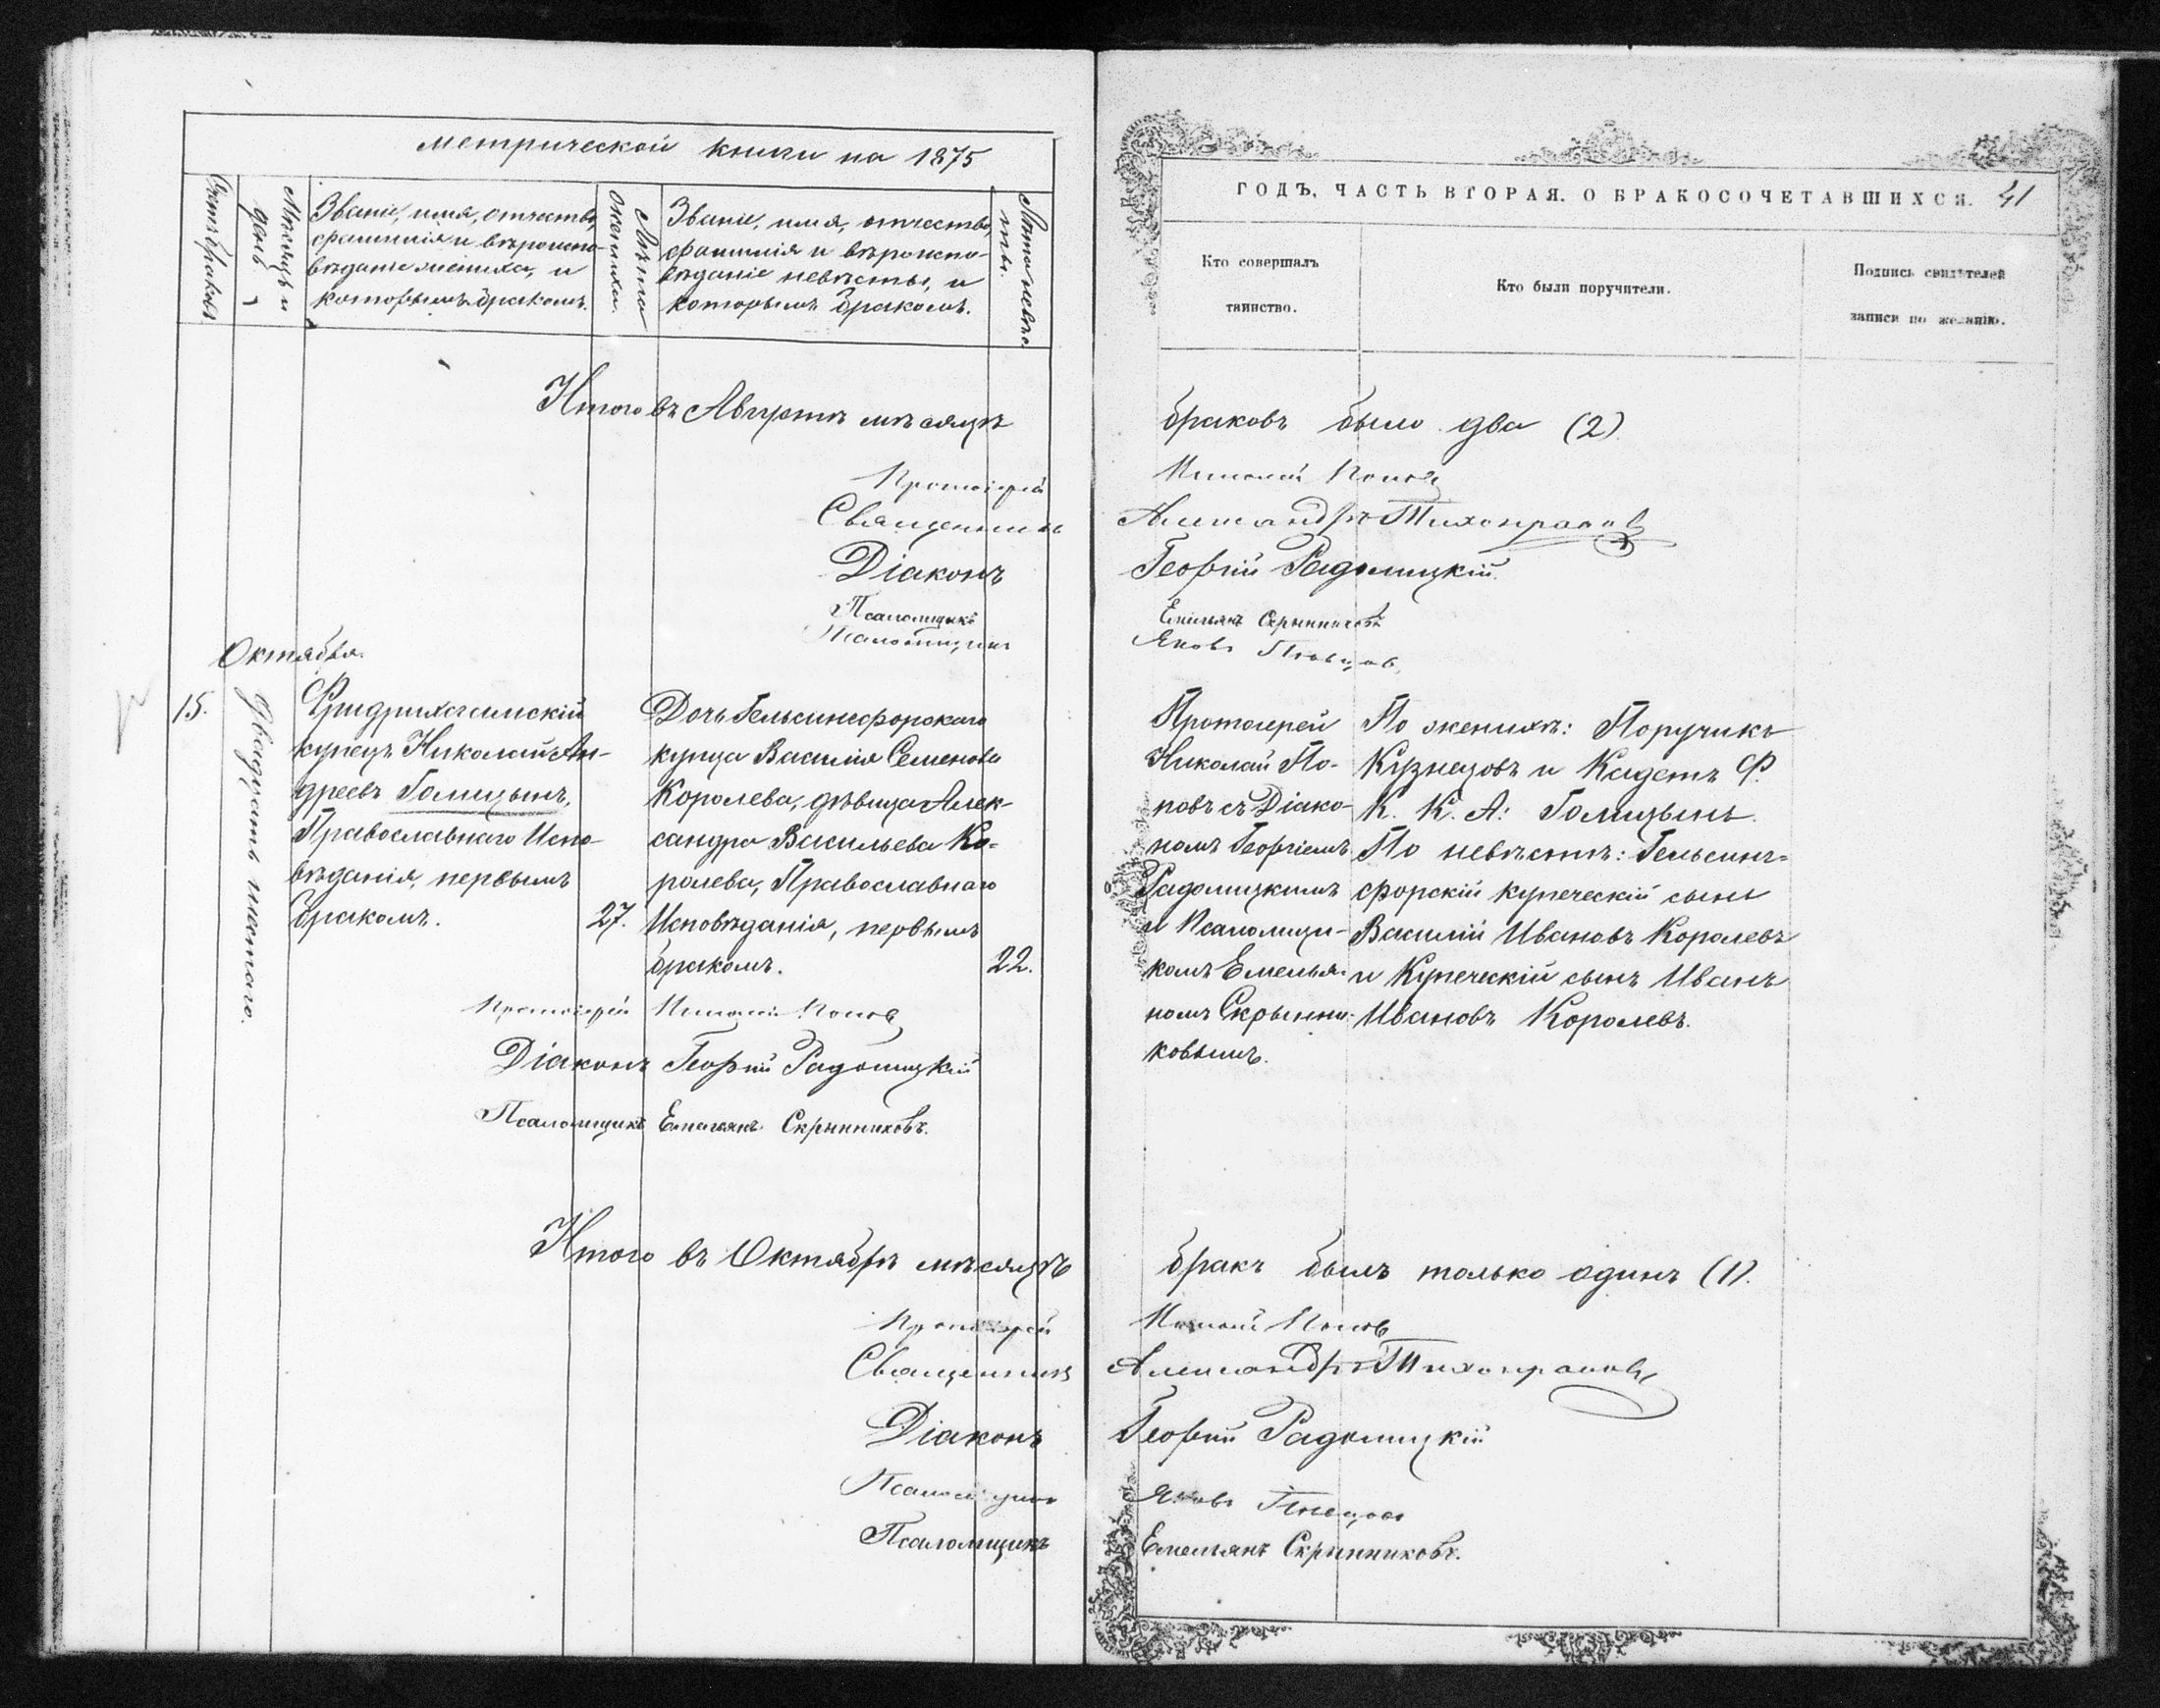 метрической книги на 1875
Счетъ браковъ.
Мѣсяцъ и
день
Званіе, имя, отчество,
фамилія и вѣроиспо-
вѣданіе жениха, и
которымъ бракомъ.
Лѣта
жениха.
Званіе, имя, отчество,
фамилія и вѣроиспо-
вѣданіе невѣсты, и
которымъ бракомъ.
Лѣта невѣс
ты.
Итого въ Августѣ мѣсяцѣ
Протоіерей
Священникъ
Діаконъ
Псаломщикъ
Псаломщикъ
Октября.
15.
двадцать шестаго.
Фридрихсгамскій
купецъ Николай Ан-
дреевъ Голицынъ,
Православнаго Испо-
вѣданія, первымъ
бракомъ.
27.
Дочь Гельсингфорскаго
купца Василія Семенова
Королева, дѣвица Алек-
сандра Васильева Ко-
ролева, Православнаго
Исповѣданія, первымъ
бракомъ.
22.
Протоіерей Николай Поповъ
Діаконъ Георгій Радомицкій
Псаломщикъ Емельянъ Скрынниковъ.
Итого въ Октябрѣ мѣсяцѣ
Протоіерей
Священникъ
Діаконъ
Псаломщикъ
Псаломщикъ
ГОДЪ, ЧАСТЬ ВТОРАЯ. О БРАКОСОЧЕТАВШИХСЯ. 41
Кто совершалъ
таинство.
Кто были поручители.
Подпись свидѣтелей
записи по желанію.
браковъ было два (2)
Николай Поповъ
Александръ Тихонравовъ
Георгій Радомицкій
Емельянъ Скрынниковъ
Яковъ
Протоіерей
Николай По-
повъ съ Діако-
номъ Георгіемъ
Радомицкимъ
и Псаломщи-
комъ Емелья-
номъ Скрынни-
ковымъ.
По женихѣ: Поручикъ
Кузнецовъ и Кадетъ Ф.
К. К. А: Голицынъ.
По невѣстѣ: Гельсинг-
форскій купеческій сынъ
Василій Ивановъ Королевъ
и Купеческій сынъ Иванъ
Ивановъ Королевъ.
бракъ былъ только одинъ (1).
Николай Поповъ
Александръ Тихонравовъ
Георгій Радомицкій
Яковъ
Емельянъ Скрынниковъ.